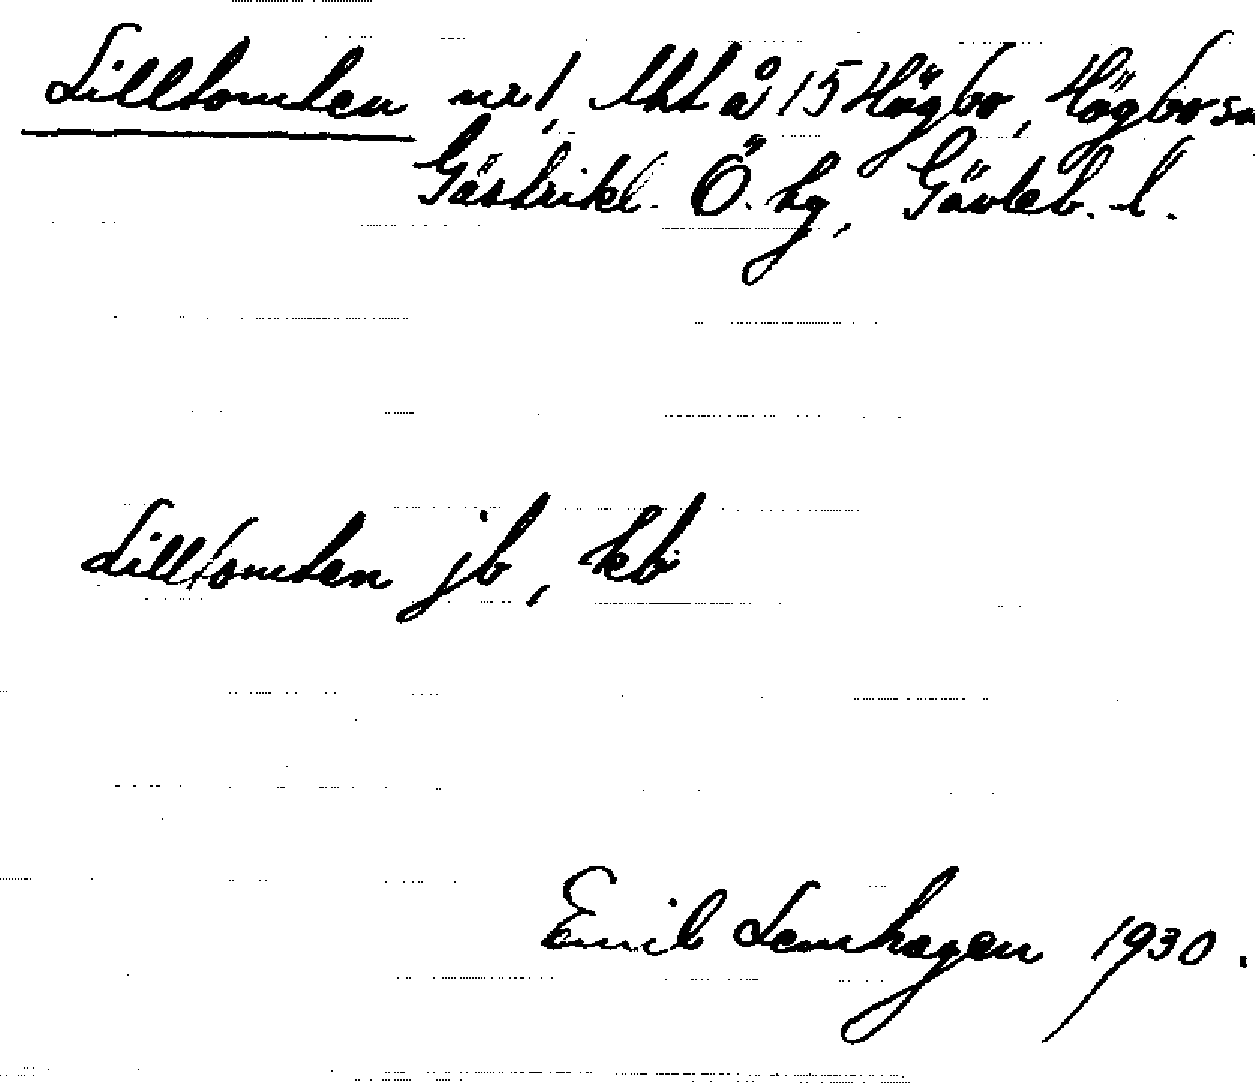 Lilltomten nr 1, Uht å 15 Högbo, Högbo sn
Gästrikl. Ö. hg, Gävleb. l.
Lilltomten jb, kb
Emil Lenhagen 1930.